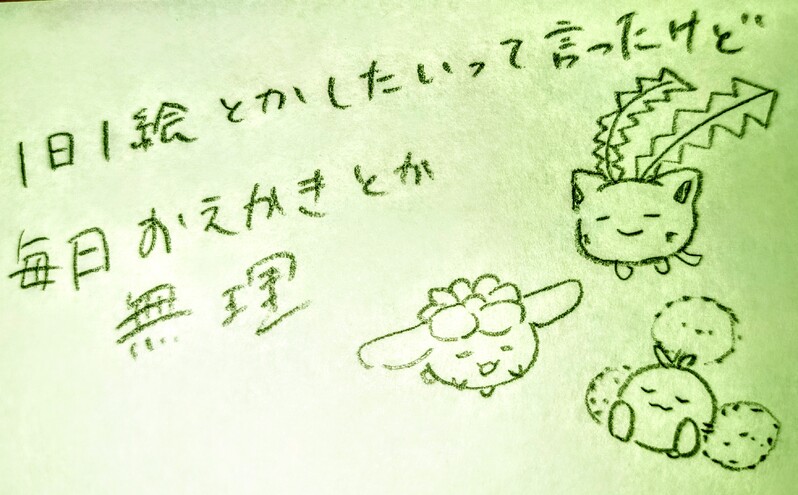 1日1絵とかしたいって言ったけど
毎日おえかきとか
無理